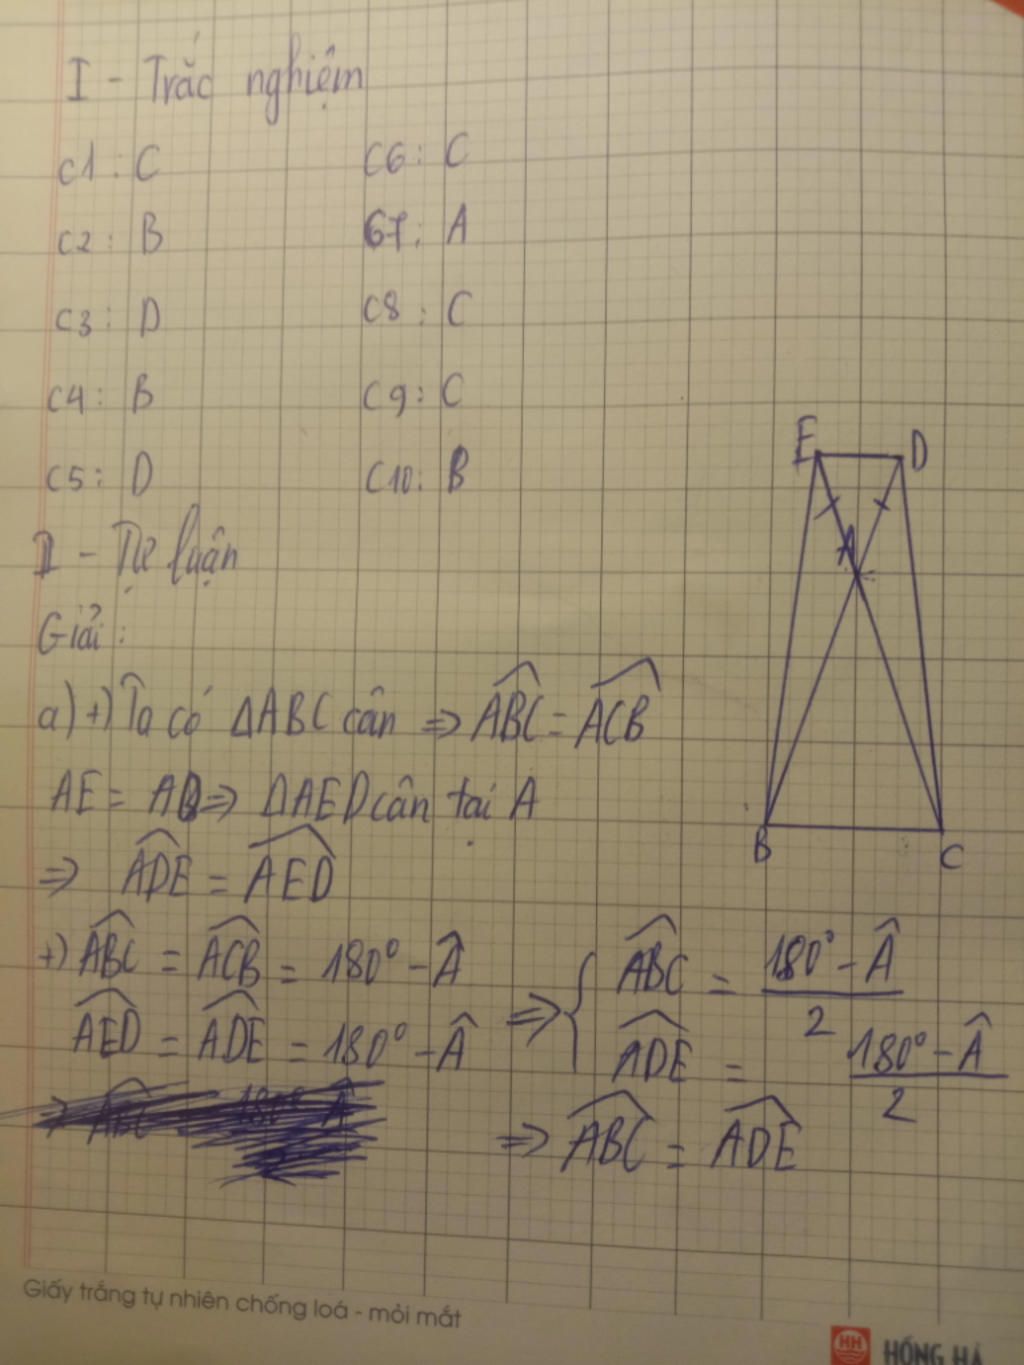 I - Trắc nghiệm
C1 : C C6 : C
C2 : B C7 : A
C3 : D C8 : C
C4 : B C9 : C
C5 : D C10 : B
E D
A
B C
I - Tự luận
Giải :
a) +) Ta có ΔABC cân ⇒ \widehat{ABC} = \widehat{ACB}
AE = AD ⇒ ΔAED cân tại A
⇒ \widehat{ADE} = \widehat{AED}
+) \widehat{ABC} = \widehat{ACB} = 180° - \widehat{A}
\widehat{AED} = \widehat{ADE} = 180° - \widehat{A}
⇒ { \widehat{ABC} = \frac{180° - \widehat{A}}{2}
\widehat{ADE} = \frac{180° - \widehat{A}}{2}
⇒ \widehat{ABC} = \widehat{ADE}
Giấy trắng tự nhiên chống loá - mỏi mắt
HH HỒNG HÀ